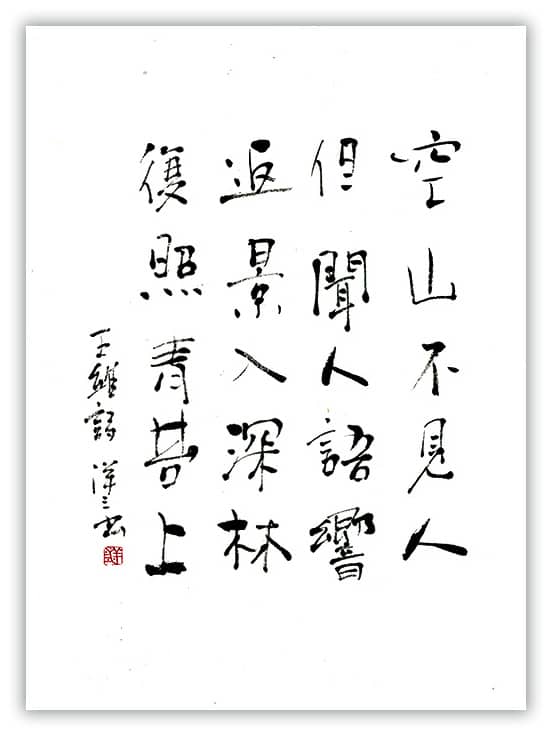 空山不見人
但聞人語響
返景入深林
復照青苔上
王維詩 書